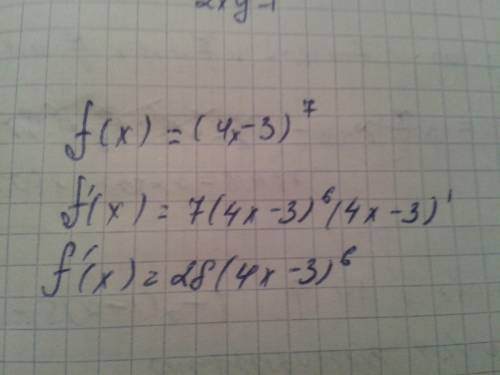 f(x) = (4x-3)⁷
f'(x) = 7(4x-3)⁶(4x-3)'
f'(x) = 28(4x-3)⁶